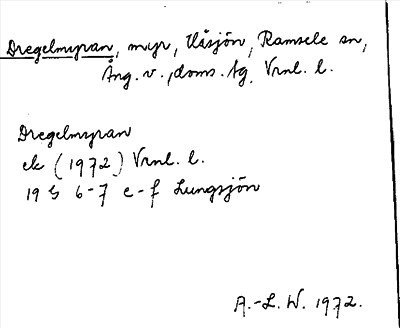 Dregelmyran, myr, Våsjön, Ramsele sn,
Ång. v., doms. tg. Vrnl. l.
Dregelmyran
ek (1972) Vrnl. l.
19 G 6-7 e-f Lungsjön
A.-L. W. 1972.